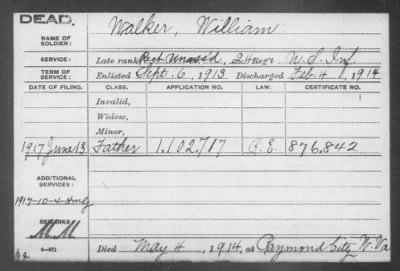 DEAD.
NAME OF SOLDIER: Walker, William
SERVICE: Late rank, Rect Unass'd, 24 Reg't U. S. Inf.
TERM OF SERVICE: Enlisted Sept. 6, 1913 Discharged Feb. 4, 1914
DATE OF FILING. CLASS. APPLICATION NO. LAW. CERTIFICATE NO.
Invalid,
Widow,
Minor,
1917 June 13 Father 1.102717 G.E. 876.842
ADDITIONAL SERVICES:
1917-10-4
REMARKS:
MM
Died May 4, 1914, at Raymond City W. Va